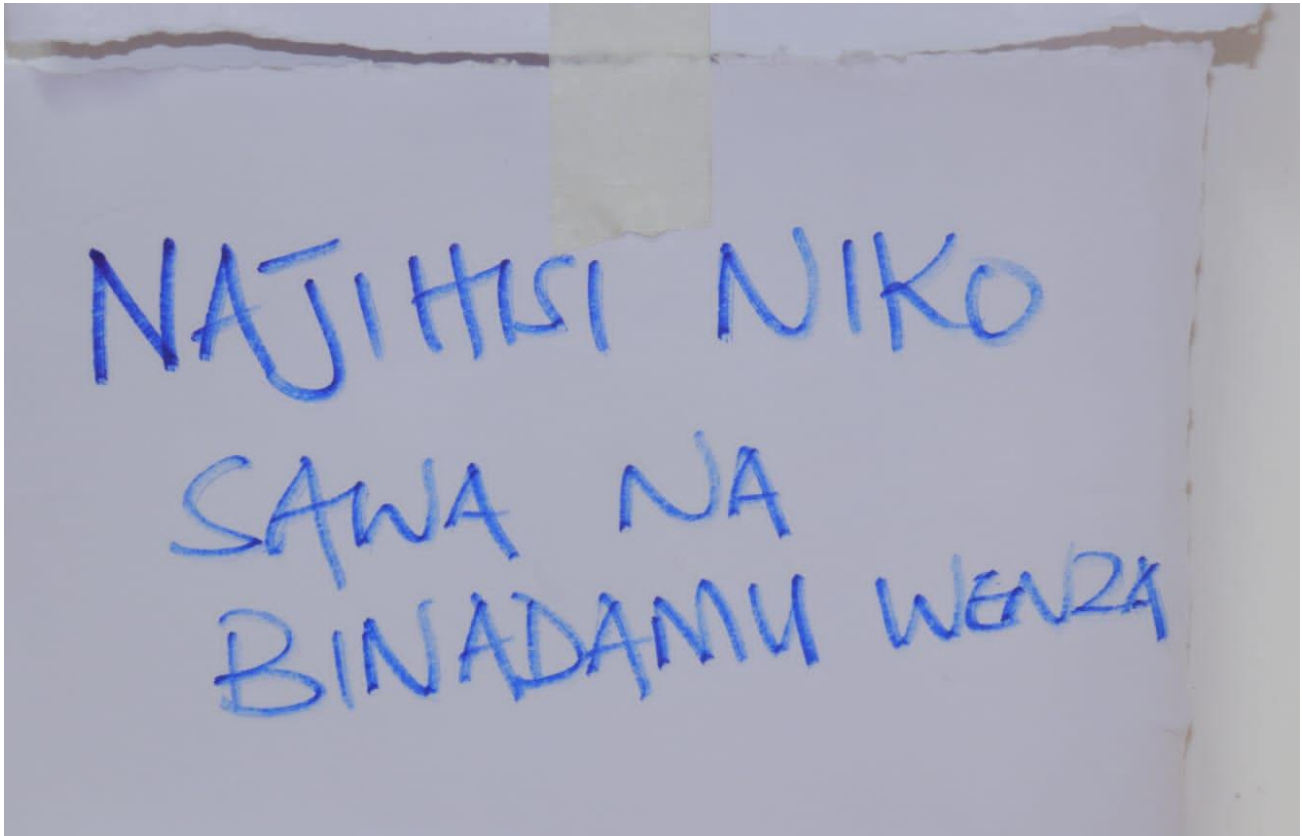 NAJIHISI NIKO
SAWA NA
BINADAMU WENZA